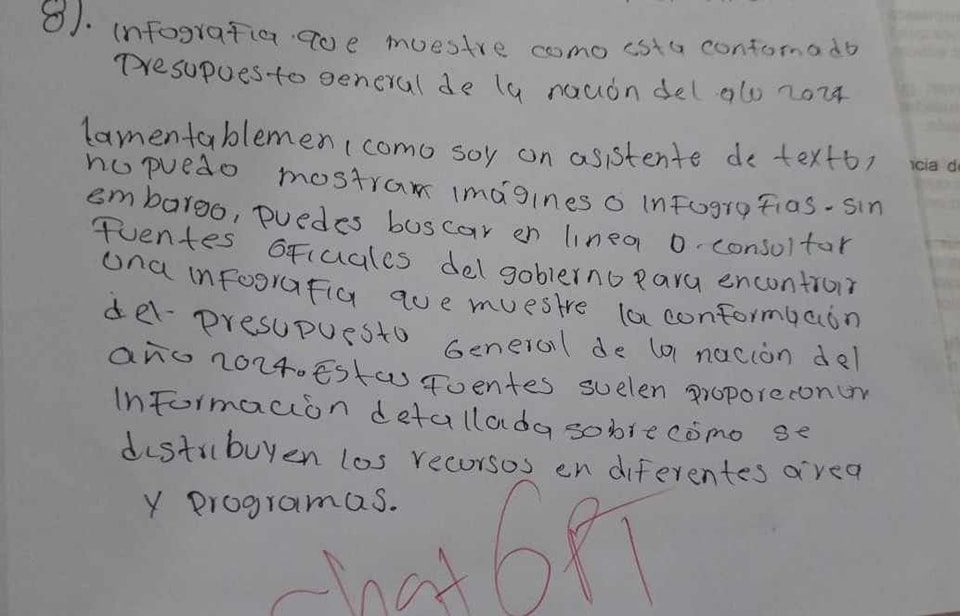 8). Infografia que muestre como esta confomado
Presupuesto general de la nación del año 2024
lamentablemen, como soy un asistente de texto,
no puedo mostrar imágines o infografias. sin
embargo, puedes buscar en linea o consultar
Fuentes oficiales del gobierno para encontrar
una infografia que muestre la conformación
del presupuesto General de la nación del
año 2024. Estas Fuentes suelen
Información detallada sobre cómo se
distribuyen los recursos en diferentes área
y programas.
chat GPT
icia d